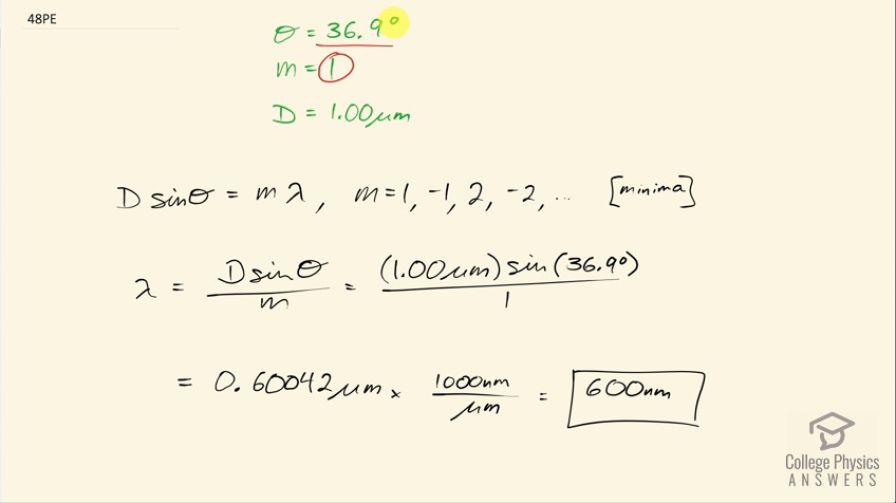 48PE
θ = 36.9°
m = 1
D = 1.00 μm
D sinθ = m λ, m = 1, -1, 2, -2, ... [minima]
λ = D sinθ / m = (1.00 μm) sin(36.9°) / 1
= 0.60042 μm × 1000 nm / μm = 600 nm
College Physics
ANSWERS